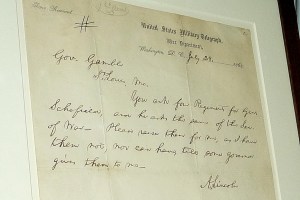 #
United States Military Telegraph,
War Department,
Washington, D. C. July 28,
Gov. Gamble
St. Louis, Mo.
You ask for Regiments for Gen
Schofield, and he asks the same of the Sec.
of War. Please raise them for me. I have
them not, nor can have, till some governor
gives them to me
A. Lincoln